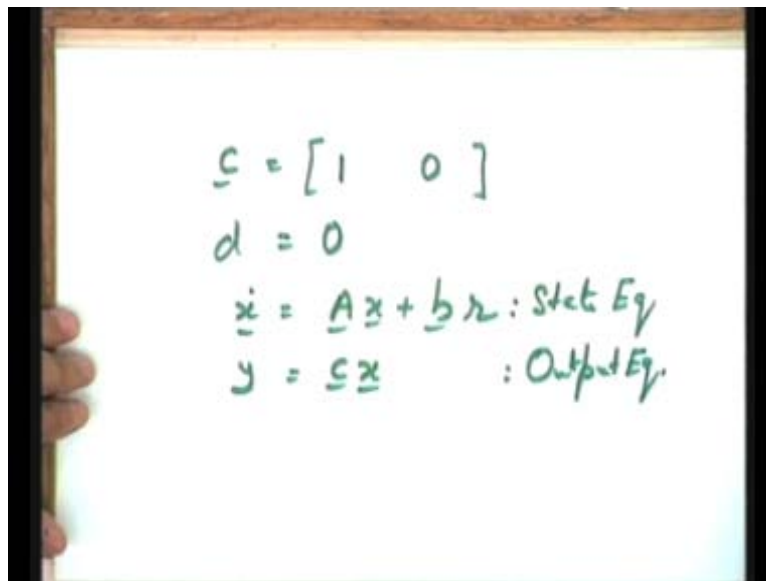 c = [1 0]
d = 0
ẋ = Ax + br : State Eq
y = cx : Output Eq.